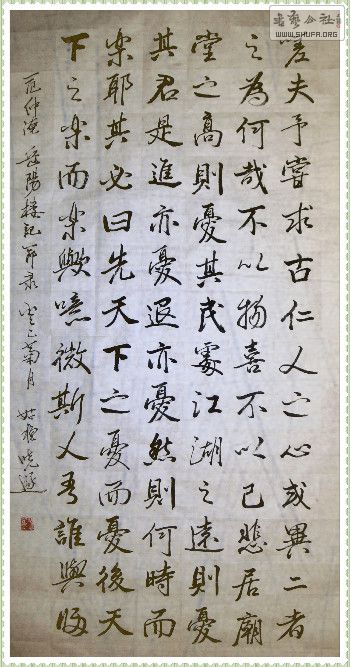 嗟夫予嘗求古仁人之心或異二者
之為何哉不以物喜不以己悲居廟
堂之高則憂其民處江湖之遠則憂
其君是進亦憂退亦憂然則何時而
樂耶其必曰先天下之憂而憂後天
下之樂而樂歟噫微斯人吾誰與歸
范仲淹 岳陽樓記節录 癸巳菊月
书艺公社
WWW.SHUFA.ORG